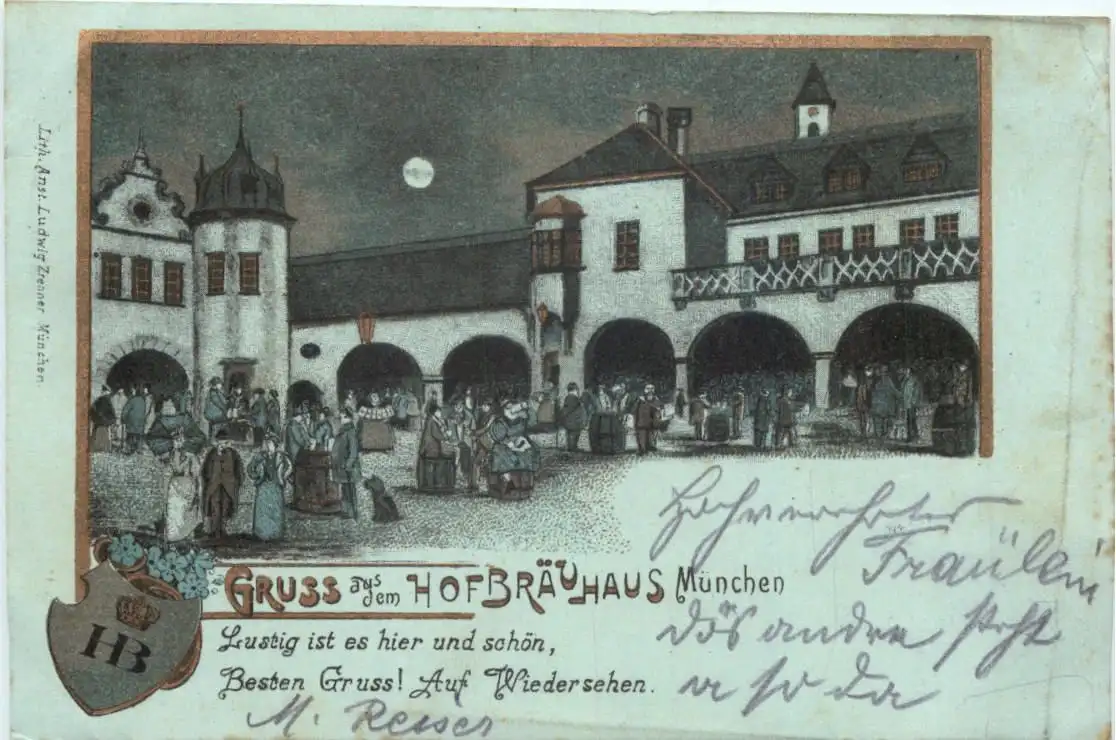 Lith. Anst. Ludwig Zrenner München.
GRUSS aus dem HOFBRÄUHAUS München
HB
Lustig ist es hier und schön,
Besten Gruss! Auf Wiedersehen.
M. Reiser
Hochverehrtes
Fräulein
das andre steht
a so da